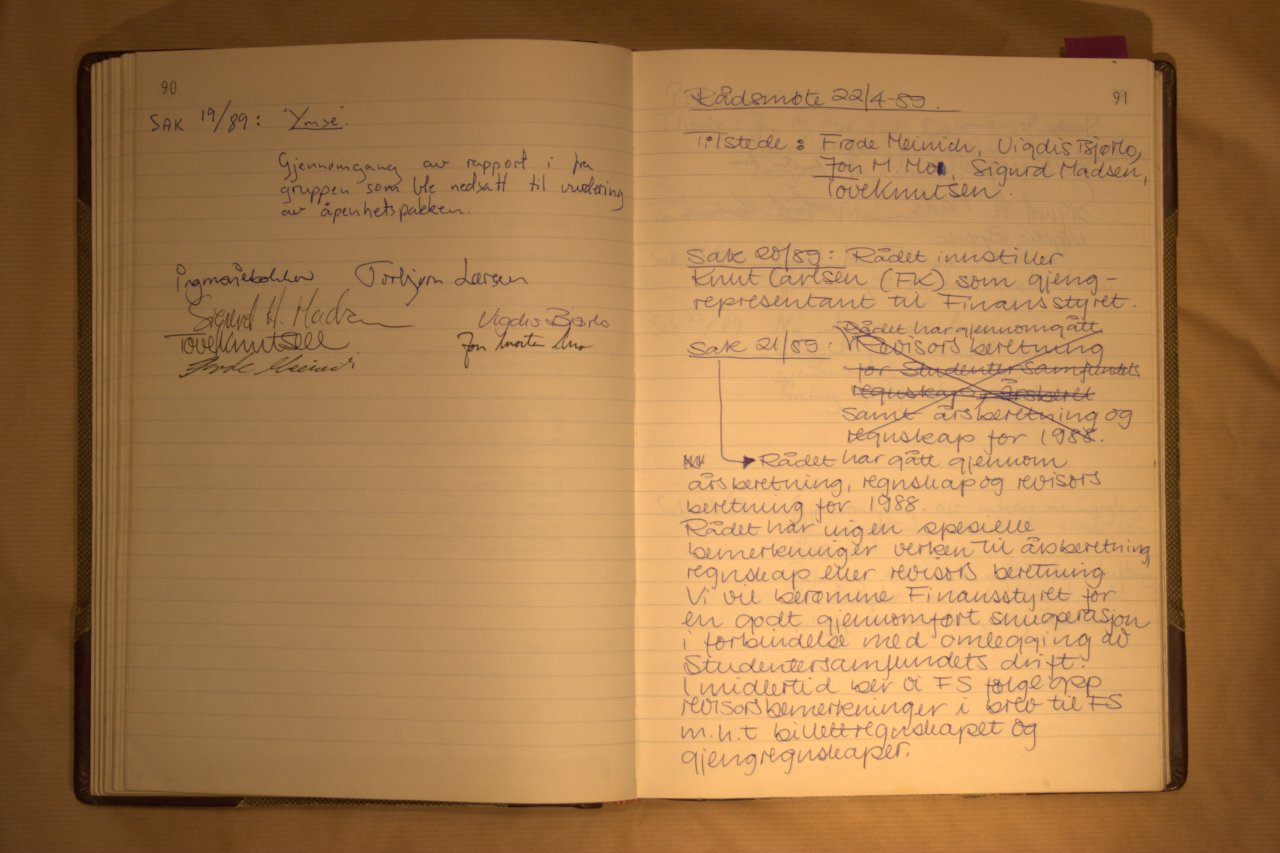 90
SAK 19/89: Ymse.
Gjennomgang av rapport i fra
gruppen som ble nedsatt til vurdering
av åpenhetspakken.
Torbjørn Larsen
Sigurd H. Madsen
Vigdis Bjørlo
Tove Knutsen
Jon Morten Mo
Frode Meinich
91
Rådsmøte 22/4-89.
Tilstede: Frode Meinich, Vigdis Bjørlo,
Jon M. Mo, Sigurd Madsen,
Tove Knutsen.
Sak 20/89: Rådet innstiller
Knut Carlsen (FK) som gjeng-
representant til Finansstyret.
Rådet har gjennomgått
Sak 21/89: Revisors beretning
for Studentersamfundets
regnskap, årsberet
samt årsberetning og
regnskap for 1988.
Rådet har gått gjennom
årsberetning, regnskap og revisors
beretning for 1988.
Rådet har ingen spesielle
bemerkninger verken til årsberetning,
regnskap eller revisors beretning
Vi vil berømme Finansstyret for
en godt gjennomført snuoperasjon
i forbindelse med omlegging av
Studentersamfundets drift.
Imidlertid ber vi FS følge opp
revisorsbemerkninger i brev til FS
m.h.t billettregnskapet og
gjengregnskaper.